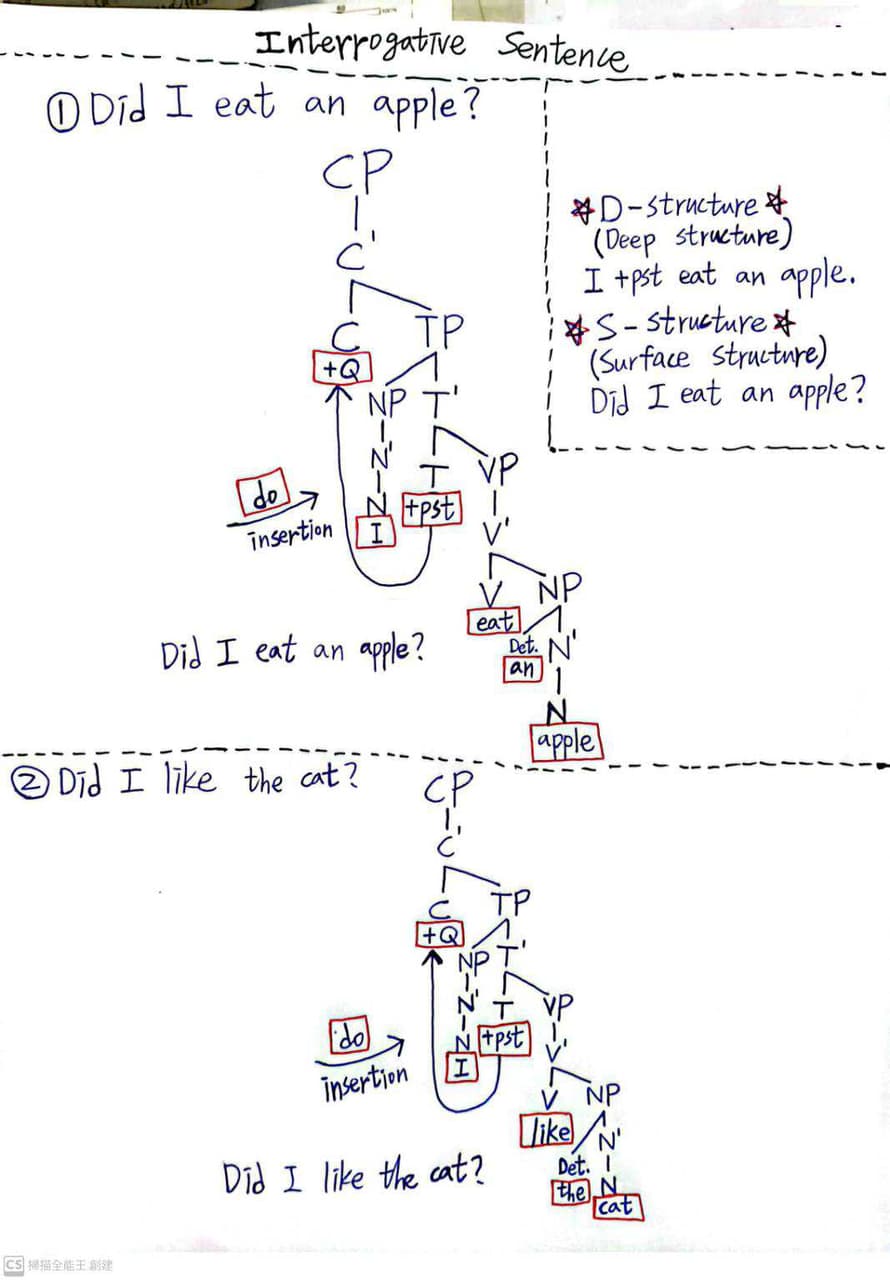 Interrogative Sentence
① Did I eat an apple?
CP
C'
C TP
+Q
NP T'
N'
T VP
N +pst
I
V'
do
insertion
V NP
eat
Det. N'
an
N
apple
Did I eat an apple?
☆ D-structure ☆
(Deep structure)
I +pst eat an apple.
☆ S-structure ☆
(Surface structure)
Did I eat an apple?
② Did I like the cat?
CP
C'
C TP
+Q
NP T'
N' T VP
N +pst
I
V'
do
insertion
V NP
like
N'
Det.
the N
cat
Did I like the cat?
CS 掃描全能王 創建